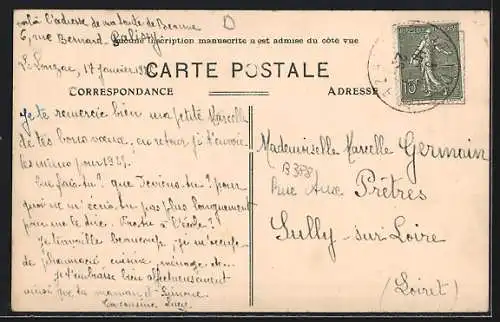 voilà l'adresse de ma tante de Beaune
6, rue Bernard-Palissy
D
Aucune inscription manuscrite n'est admise du côté vue
17 Janvier
CARTE POSTALE
CORRESPONDANCE
ADRESSE
10
Je te remercie bien ma petite Marcelle
de tes bons voeux, en retour je t'envoie
les miens pour
Que fais-tu? que deviens-tu? pour
quoi ne m'écris-tu pas plus longuement
pour me le dire. à l'école?
Je travaille beaucoup, je m'occupe
de pharmacie cuisine, ménage, etc...
Je t'embrasse bien affectueusement
ainsi que ta maman et Simone.
Ta cousine
Mademoiselle Marcelle Germain
B388
Rue Aux Prêtres
Sully-sur-Loire
(Loiret)